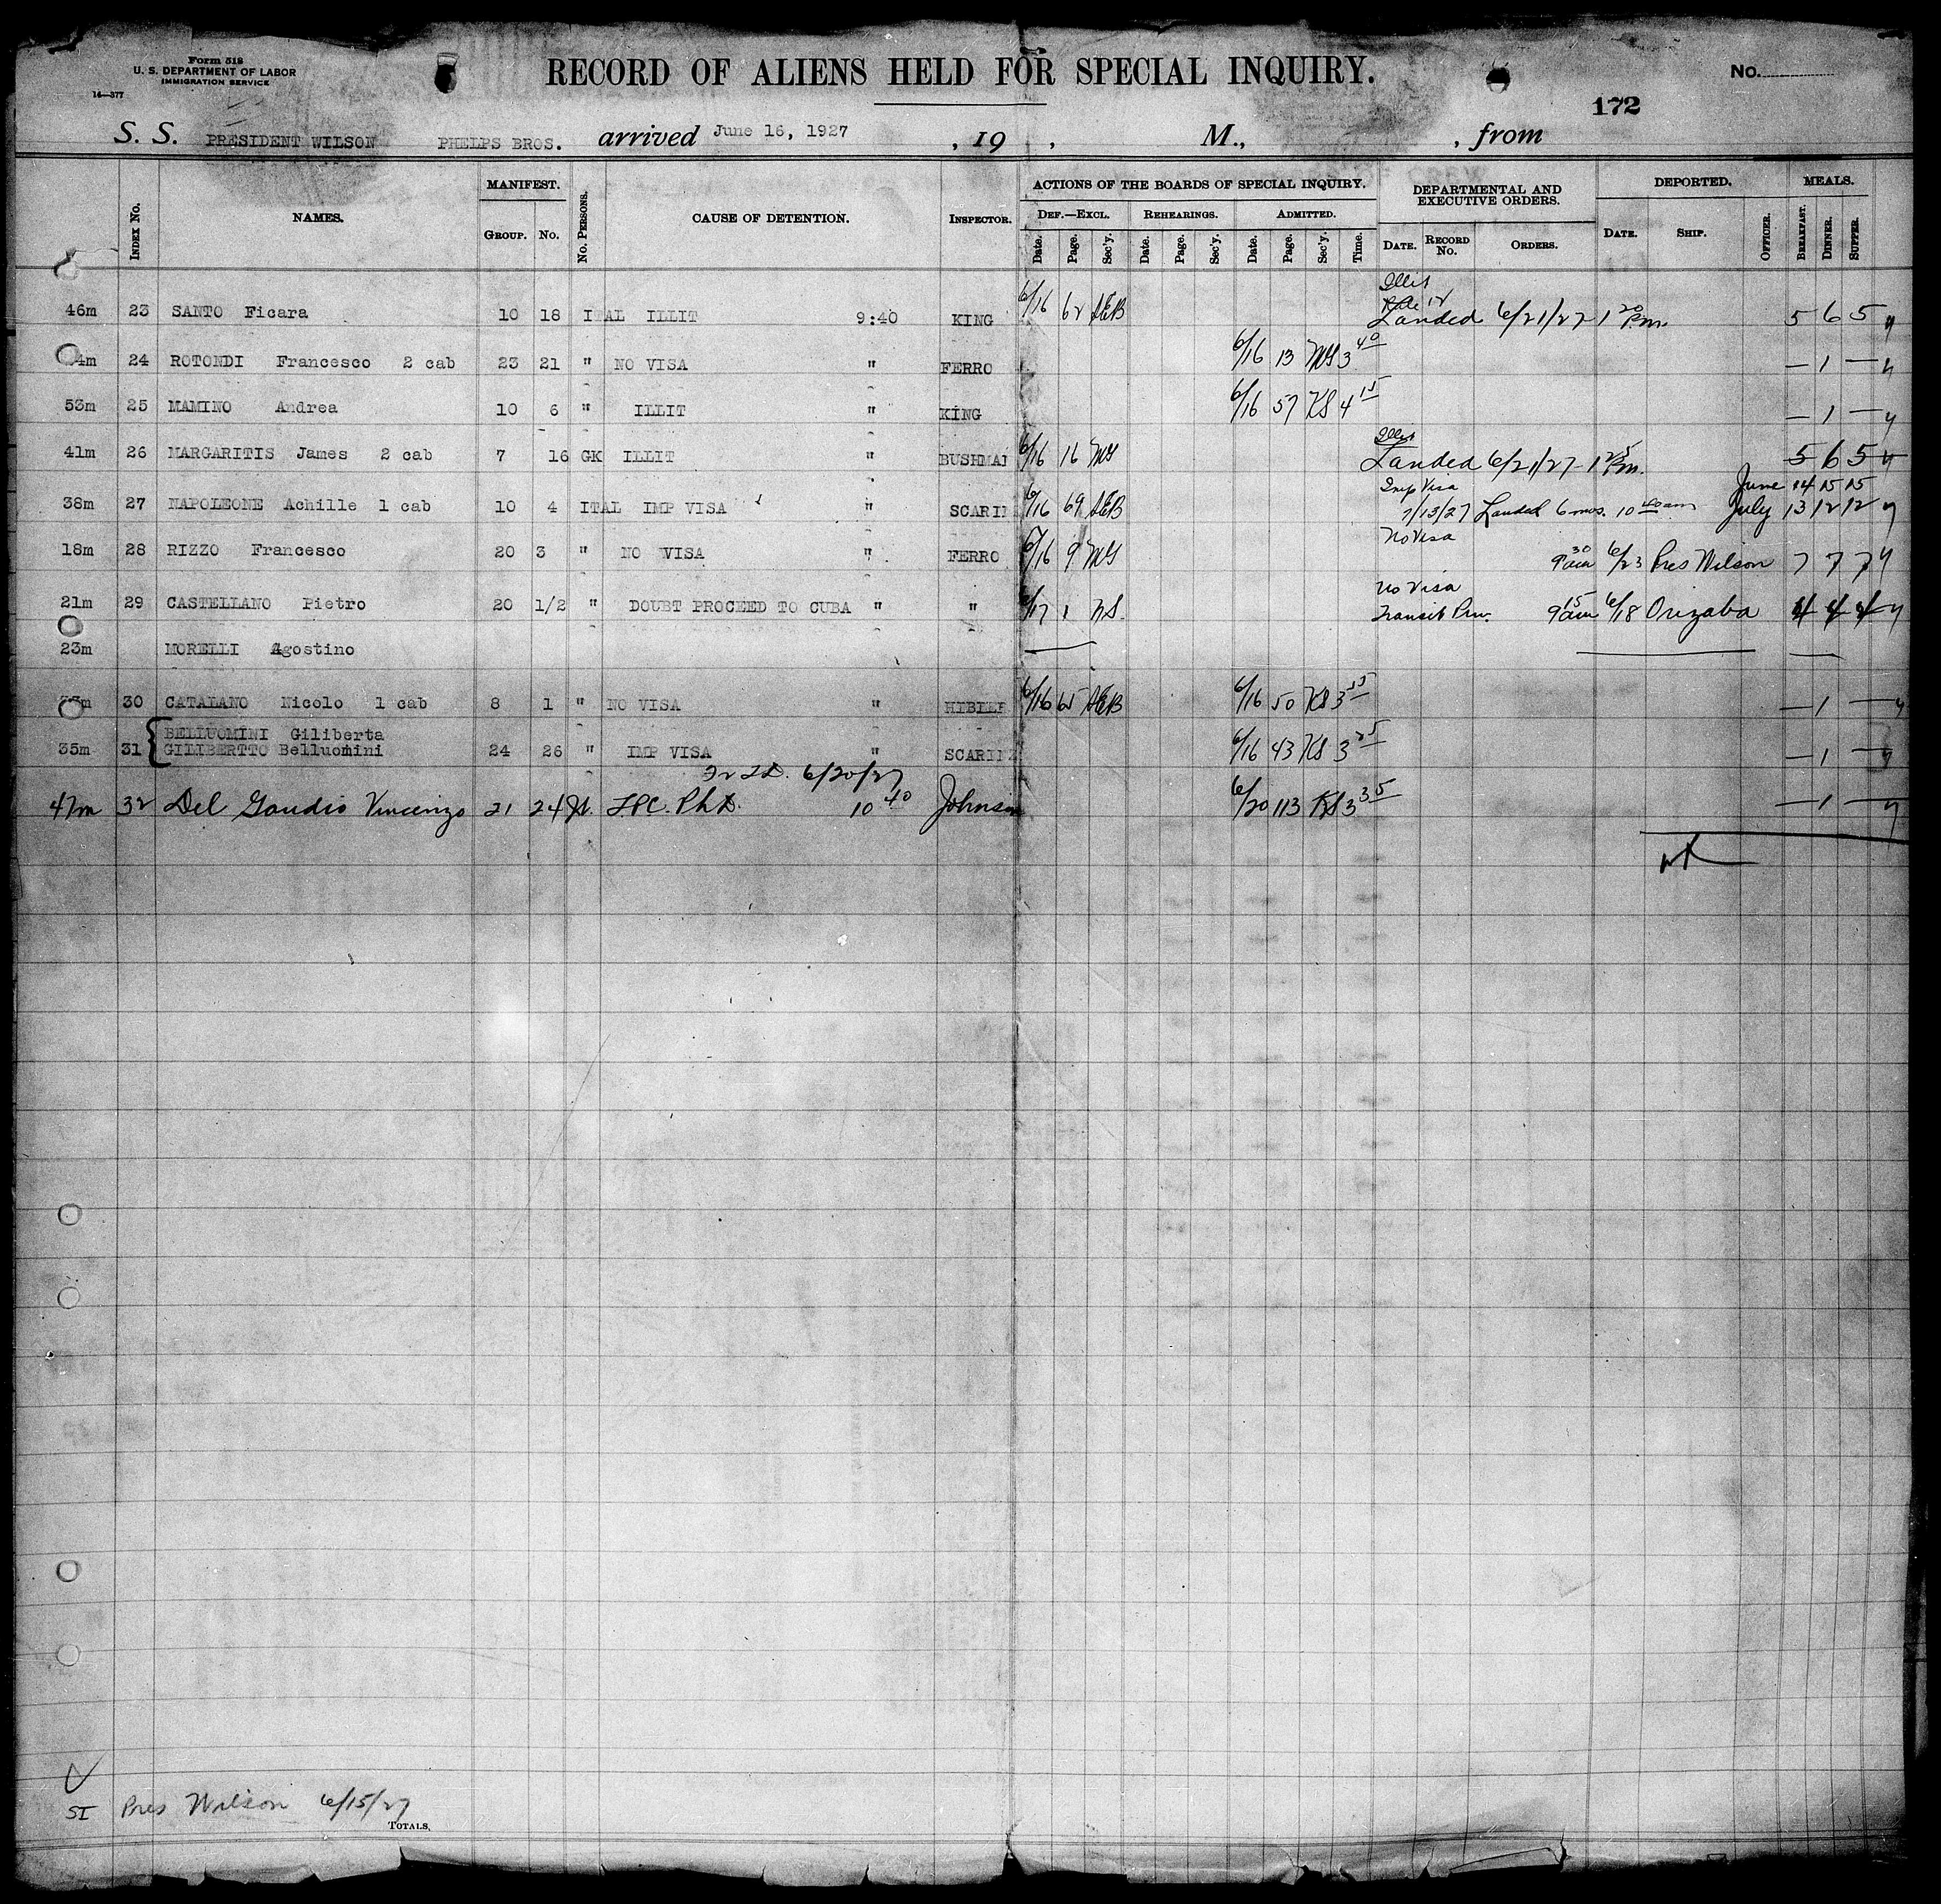 Form 518
U. S. DEPARTMENT OF LABOR
IMMIGRATION SERVICE
14—377
RECORD OF ALIENS HELD FOR SPECIAL INQUIRY.
No.
172
S. S. PRESIDENT WILSON PHELPS BROS. arrived June 16, 1927 , 19 , M., , from
INDEX NO. NAMES. MANIFEST. GROUP. NO. NO. PERSONS. CAUSE OF DETENTION. INSPECTOR. ACTIONS OF THE BOARDS OF SPECIAL INQUIRY. DEF.—EXCL. Date. Page. Sec'y. REHEARINGS. Date. Page. Sec'y. ADMITTED. Date. Page. Sec'y. Time. DEPARTMENTAL AND EXECUTIVE ORDERS. DATE. RECORD NO. ORDERS. DEPORTED. DATE. SHIP. OFFICER. MEALS. BREAKFAST. DINNER. SUPPER.
46m 23 SANTO Ficara 10 18 ITAL ILLIT 9:40 KING 6/16 62 AEB Landed 6/21/27 1 20 Pm. 5 6 5
24 ROTONDI Francesco 2 cab 23 21 " NO VISA " FERRO 6/16 13 MG 3 40 — 1 —
53m 25 MAMINO Andrea 10 6 " ILLIT " KING 6/16 57 KS 4 15 — 1 —
41m 26 MARGARITIS James 2 cab 7 16 GK ILLIT " BUSHMAN 6/16 16 MG Landed 6/21/27 - 1 25 Pm. 5 6 5
Imp Visa June 14 15 15
38m 27 NAPOLEONE Achille 1 cab 10 4 ITAL IMP VISA " SCARIN 6/16 69 AEB 7/13/27 Landed 6 mos. 10 40 am July 13 12 12
No Visa
18m 28 RIZZO Francesco 20 3 " NO VISA " FERRO 6/16 9 MG 9 30 am 6/23 Pres Wilson 7 7 7
No Visa
21m 29 CASTELLANO Pietro 20 1/2 " DOUBT PROCEED TO CUBA " " 6/17 1 Transit Priv. 9 15 am 6/18 Orizaba 4 4 4
23m MORELLI Agostino
30 CATALANO Nicolo 1 cab 8 1 " NO VISA " 6/16 65 AEB 6/16 50 KS 3 15 — 1 —
BELLUOMINI Giliberta
35m 31 GILIBERTTO Belluomini 24 26 " IMP VISA " SCARIN 6/16 43 KS 3 25 — 1 —
6/20/27
47m 32 Del Gaudio Vincenzo 21 24 It. LPC. Ph D. 10 40 Johnson 6/20 113 KS 3 35 — 1 —
SI Pres Wilson 6/15/27
TOTALS,